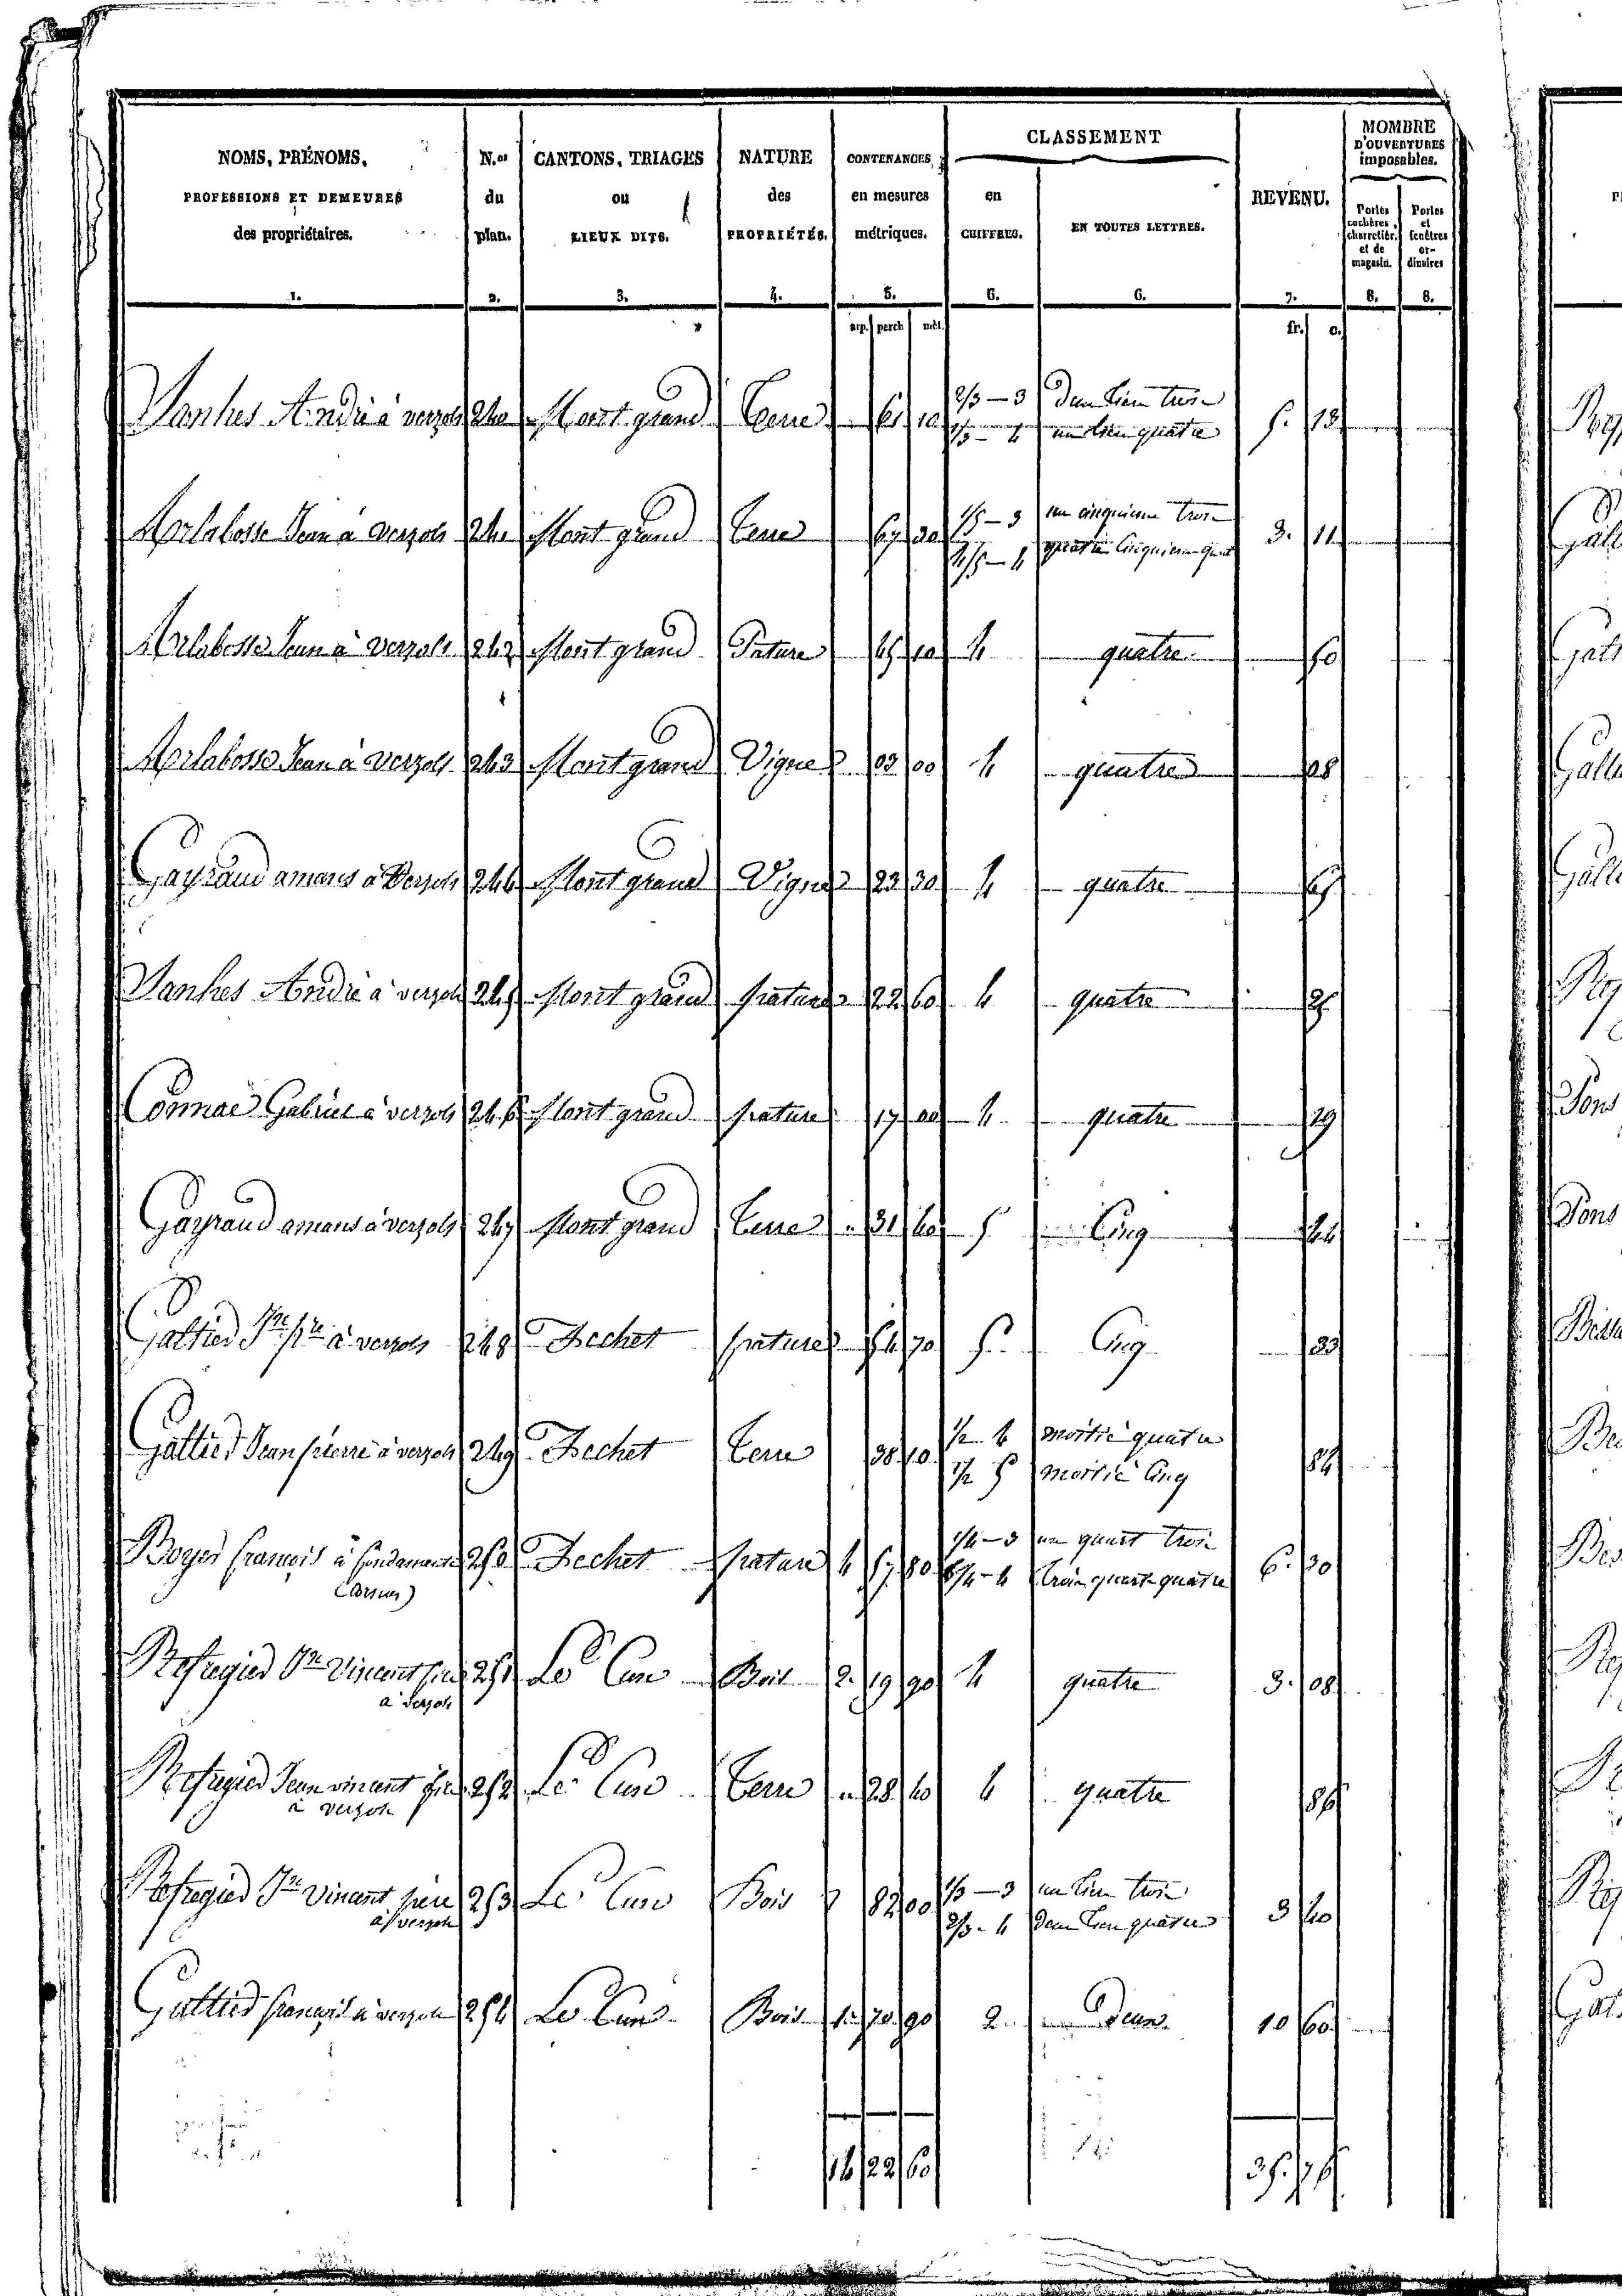 NOMS, PRÉNOMS, PROFESSIONS ET DEMEURES des propriétaires.
N.os du plan.
CANTONS, TRIAGES ou LIEUX DITS.
NATURE des PROPRIÉTÉS.
CONTENANCES, en mesures métriques.
CLASSEMENT
en CHIFFRES.
EN TOUTES LETTRES.
REVENU.
MOMBRE D'OUVERTURES imposables.
Portes cochères, charretièr. et de magasin.
Portes et fenêtres ordinaires
1. 2. 3. 4. 5. 6. 6. 7. 8. 8.
arp. perch mèt. fr. c.
Vanhes André à verzols 240 Mont grand Terre 61 10 2/3 — 3 Deux tiers trois 5. 13
1/3 — 4 un tiers quatre
Marlabosse Jean à verzols 241 Mont grand Terre 67 30 1/5 — 3 un cinquieme trois 3. 11
4/5 — 4 quatre Cinquieme
Marlabosse Jean à verzols 242 Mont grand Pature 45 10 4 quatre 50
Marlabosse Jean à verzols 243 Mont grand Vigne 03 00 4 quatre 08
Gayraud amans à Verzols 244 Mont grand Vigne 23 30 4 quatre 65
Vanhes André à verzols 245 Mont grand pature 22 60 4 quatre 25
Connac Gabriel à verzols 246 Mont grand pature 17 00 4 quatre 19
Gayraud amans à verzols 247 Mont grand Terre 31 40 5 Cinq 44
Galtier Jn pre à verzols 248 Bechet pature 54 70 5 Cinq 33
Galtier Jean pierre à verzols 249 Bechet Terre 38 10 1/2 4 moitié quatre 84
1/2 5 moitié Cinq
Boyer françois à 250 Bechet pature 4 57 80 1/4 — 3 un quart trois 6. 30
3/4 — 4 trois quart quatre
Refregier Jn Vincent père 251 Le Cun Bois 2. 19 90 4 quatre 3. 08
à verzols
Refregier Jean vincent père 252 Le Cun Terre 28 40 4 quatre 85
à verzols
Refregier Jn Vincent père 253 Le Cun Bois 82 00 1/3 — 3 un tiers trois 3 40
à verzols 2/3 - 4 Deux tiers quatre
Galtier françois à verzols 254 Le Cun Bois 1. 70 90 2. Deux 10 60
14 22 60 35. 75